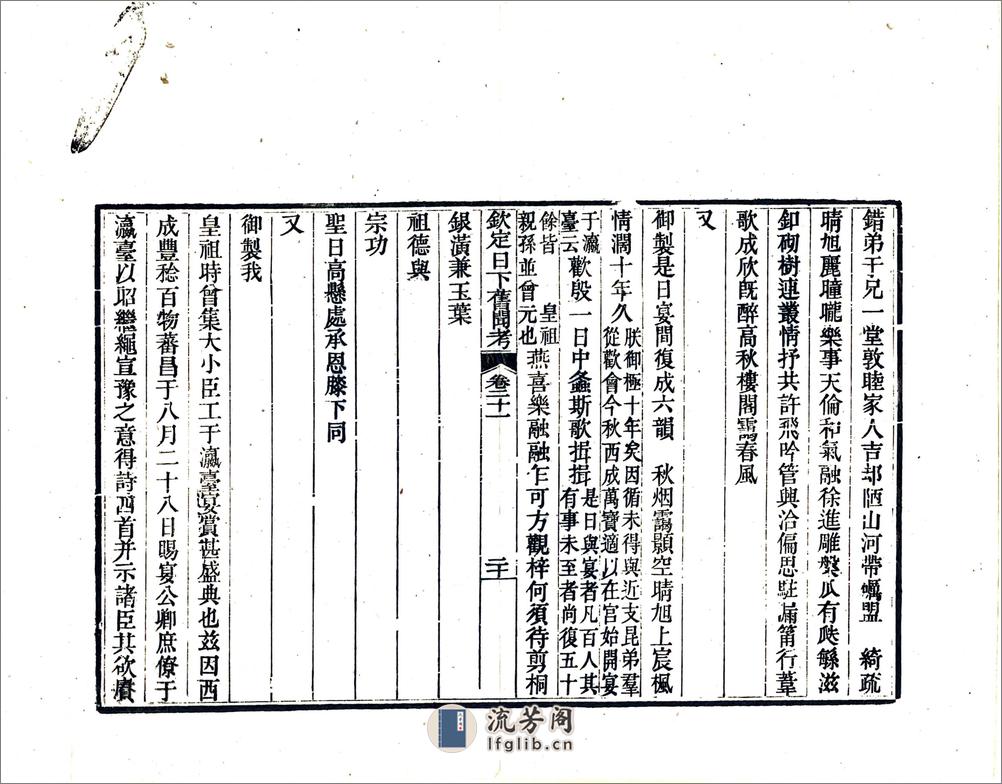 錯弟于兄一堂敦睦家人吉却陋山河帶礪盟　綺疏
晴旭麗曈曨樂事天倫和氣融徐進雕盤瓜有瓞緜滋
釦砌樹連叢情抒共許飛吟管興洽偏思駐漏筩行葦
歌成欣既醉高秋樓閣靄春風
又
御製是日宴間復成六韻　秋烟靄顥空晴旭上宸楓
情濶十年久朕御極十年矣因循未得與近支昆弟羣
從歡會今秋西成萬寶適以在宮始開宴
于瀛
臺云歡殷一日中螽斯歌揖揖是日與宴者凡百人其
有事未至者尚復五十
餘皆　皇祖
親孫並曾元也燕喜樂融融乍可方觀梓何須待剪桐
欽定日下舊聞考　卷二十一　二十
銀潢兼玉葉
祖德與
宗功
聖日高懸處承恩膝下同
又
御製我
皇祖時曾集大小臣工于瀛臺宴賞甚盛典也玆因西
成豐稔百物蕃昌于八月二十八日賜宴公卿庶僚于
瀛臺以昭繼繩宣豫之意得詩四首并示諸臣其欲賡
流芳阁
lfglib.cn